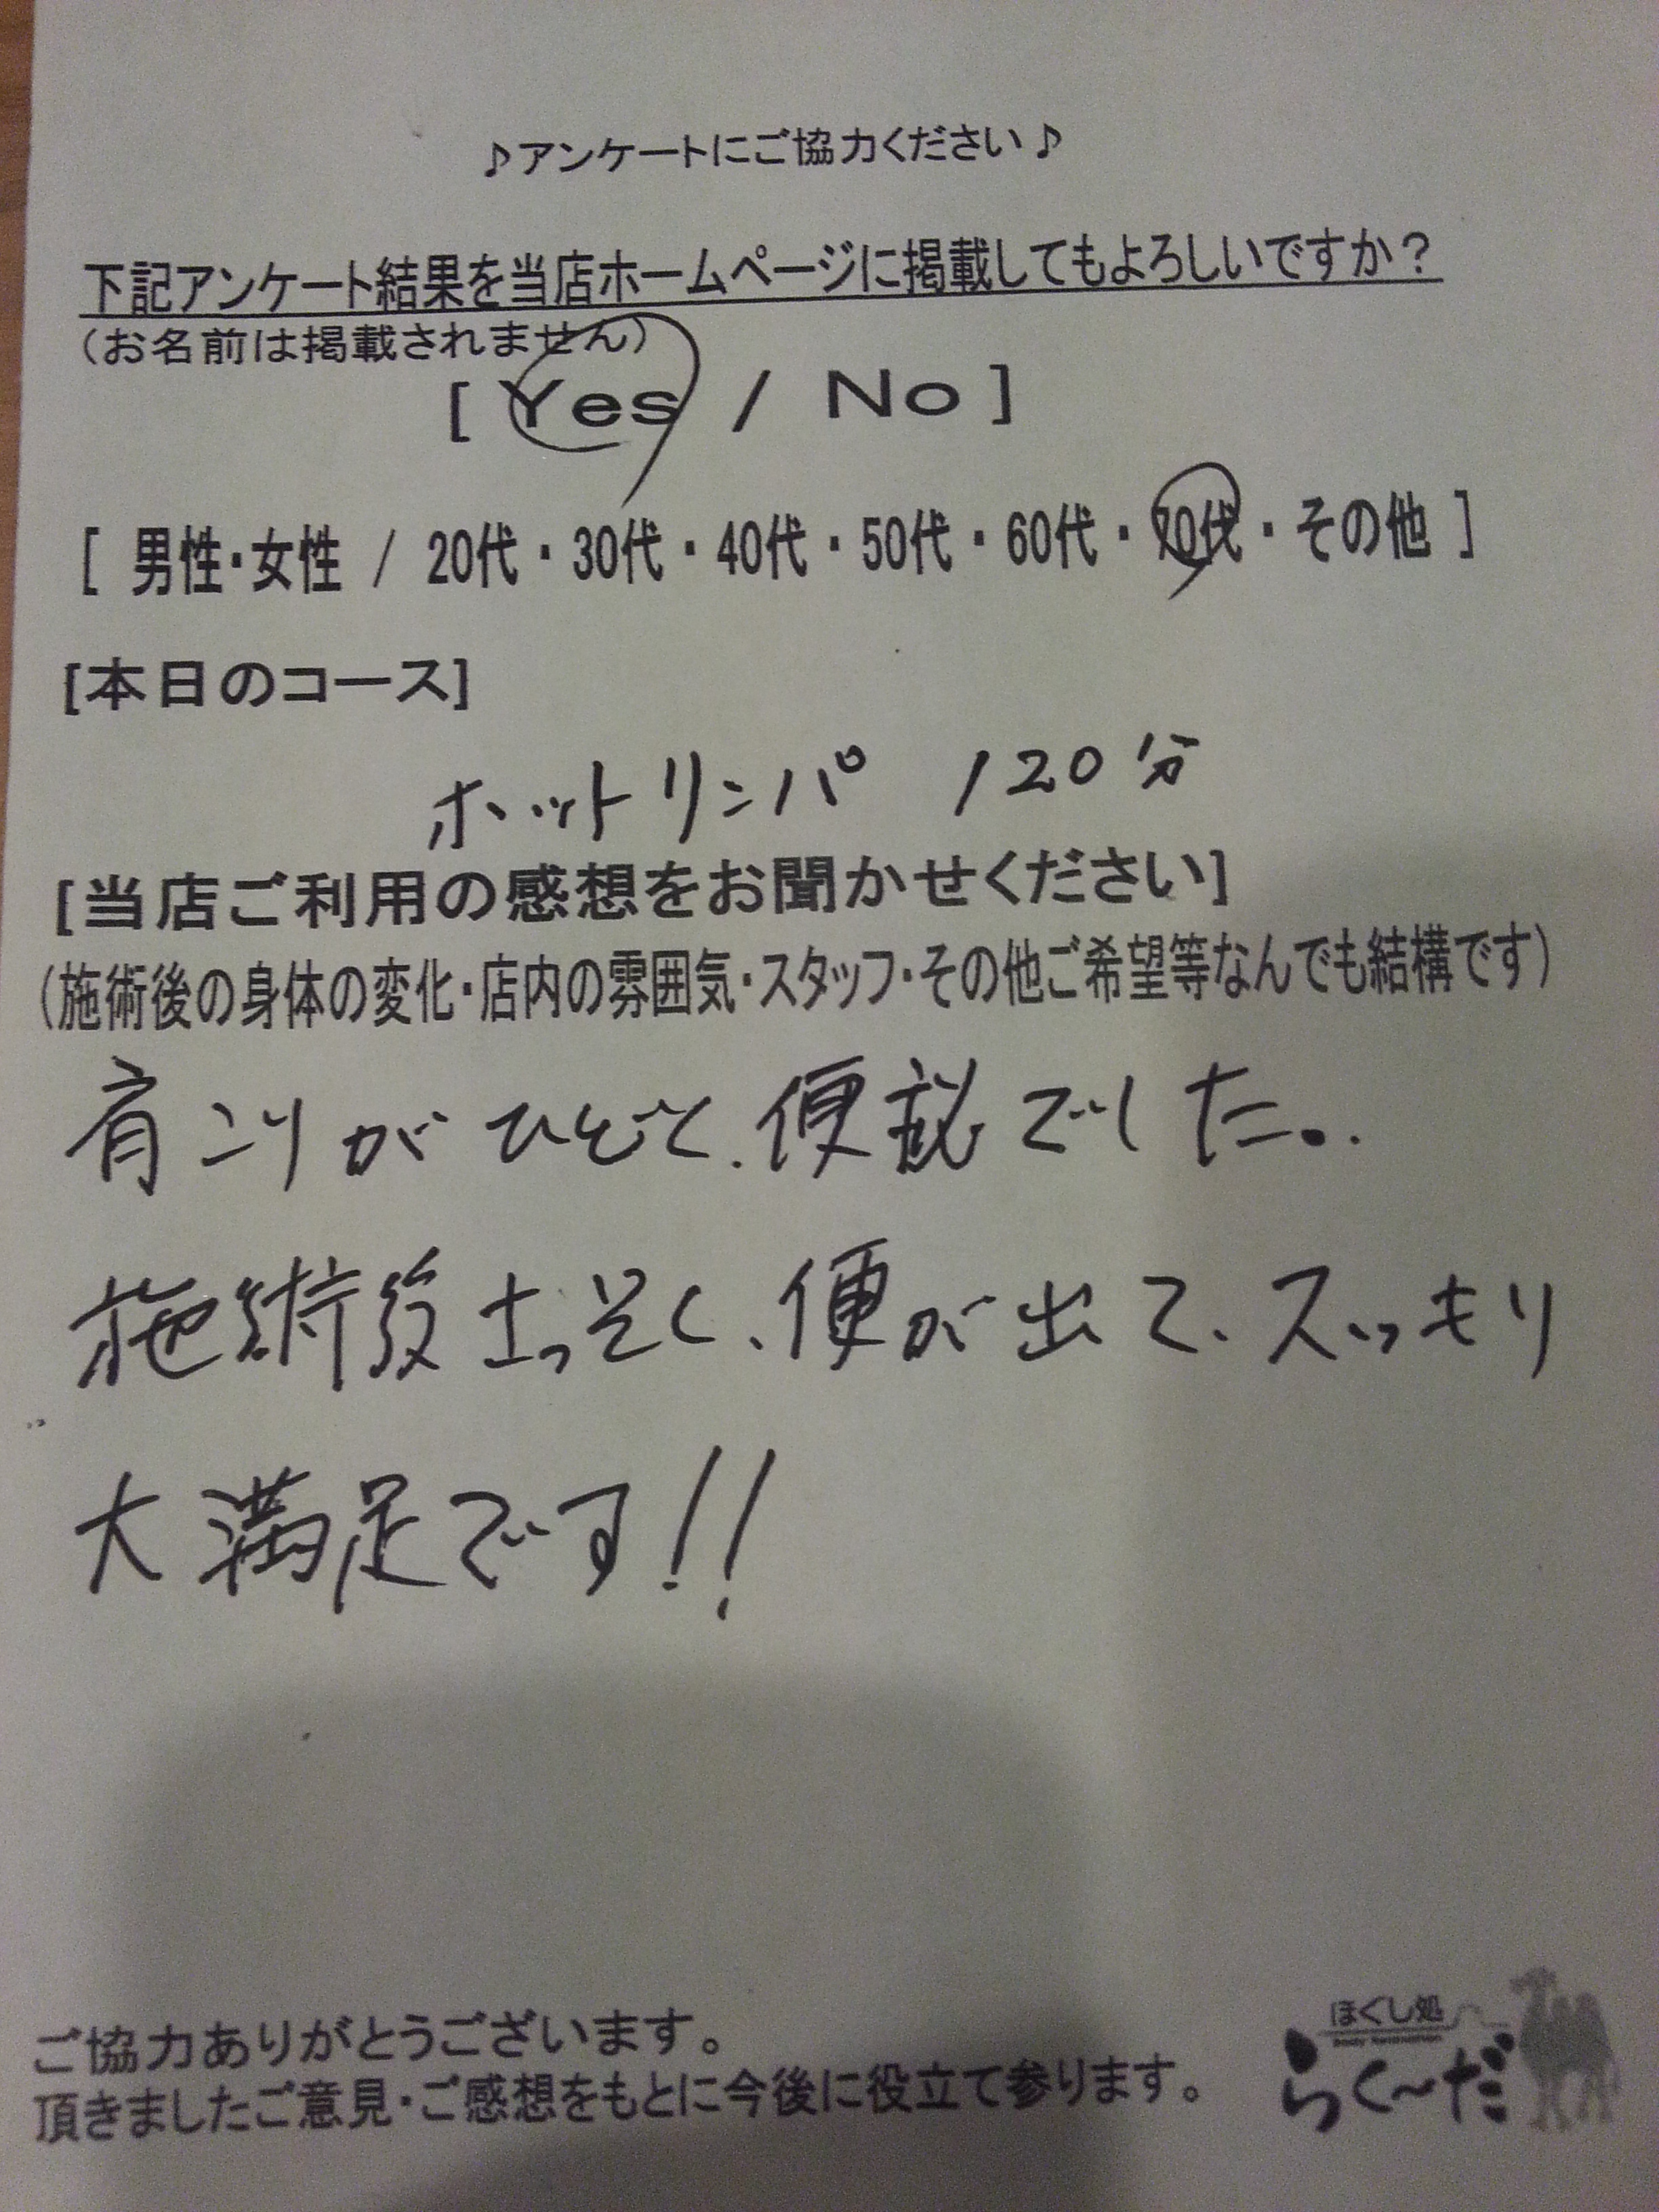 ♪アンケートにご協力ください♪
下記アンケート結果を当店ホームページに掲載してもよろしいですか？
（お名前は掲載されません）
[ Yes / No ]
[ 男性・女性 / 20代・30代・40代・50代・60代・70代・その他 ]
[本日のコース]
ホットリンパ 120分
[当店ご利用の感想をお聞かせください]
（施術後の身体の変化・店内の雰囲気・スタッフ・その他ご希望等なんでも結構です）
肩こりがひどく、便秘でした。
施術後さっそく、便が出て、スッキリ
大満足です!!
ご協力ありがとうございます。
頂きましたご意見・ご感想をもとに今後に役立て参ります。
ほぐし処
らく〜だ